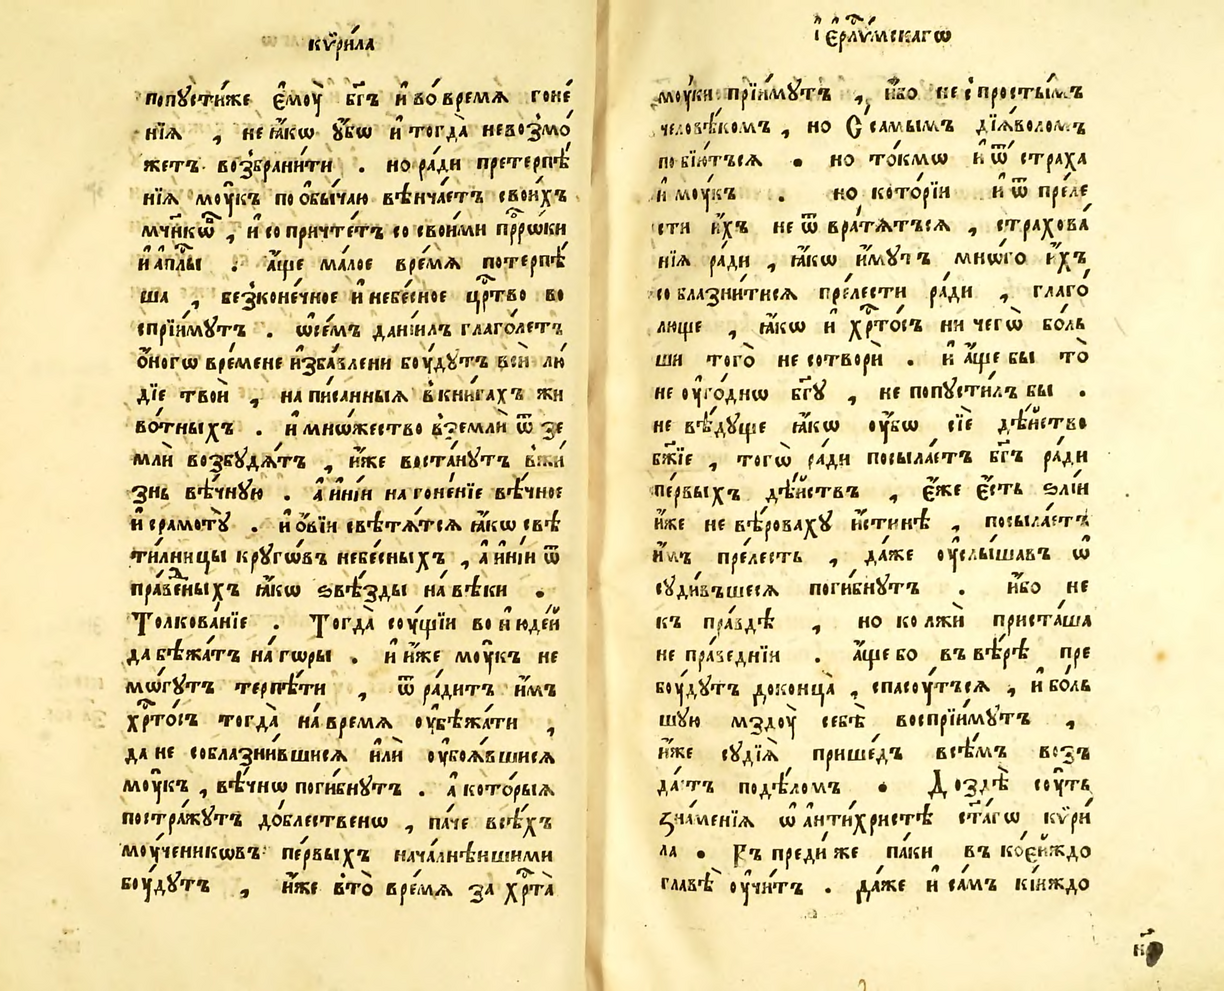 кѷри́ла
попꙋсти́же є҆моу̀ бг҃ъ и҆ во́ время гоне́
нїѧ , не ꙗ҆́кѡ ᲂу҆́бѡ и҆ тогда̀ невозмо́
жетъ возбрани́ти . но ра́ди претерпѣ́
нїѧ моу́къ по ѻ҆бы́чаю вѣнча́етъ свои́хъ
мч҃икѡⷡ҇ , и҆ со причте́тъ со свои́ми прⷪ҇рѡки
и҆ а҆пⷭ҇лы . а҆́ще ма́лое вре́мѧ потерпѣ́
ша , безконе́чное и҆ небе́сное црⷭ҇тво во
спрїи́мꙋтъ . ѡ҆се́мъ данїи́лъ глаго́летъ
ѻ҆́ногѡ вре́мене и҆зба́влени боу́дꙋтъ всѝ лю́
дїе твоѝ , напи́санныѧ в̾кни́гахъ жи
во́тныхъ . и҆ мно́жество в̾землѝ ѿ зе
млѝ возбꙋ́дѧтъ , и҆́же воста́нꙋтъ в̾жи́
знь вѣ́чнꙋю . а҆ и҆ні́и на гоне́нїе вѣ́чное
и҆ срамотꙋ̀ . и҆ ѻ҆́вїи свѣ́тѧтсѧ ꙗ҆́кѡ свѣ
ти́лницы крꙋго́въ небе́сныхъ , а҆ и҆ні́и ѿ
пра́веⷣныхъ ꙗ҆́кѡ ѕвѣ́зды на́ вѣки .
Толкова́нїе . Тогда̀ соу́щїи во и҆юде́и
да бѣжа́тъ на́ горы . и҆ и҆́же моу́къ не
мо́гꙋтъ терпѣ́ти , ѿра́дитъ и҆̀мъ
хрⷭ҇то́съ тогда̀ на́ время ᲂу҆бѣжа́ти ,
да не соблазни́вшисѧ и҆лѝ ᲂу҆боѧ́вшисѧ
моу́къ , вѣ́чнѡ поги́бнꙋтъ . а҆ кото́рыѧ
постра́жꙋтъ до́блественѡ , па́че всѣ́хъ
моу́чениковъ пе́рвыхъ нача́лнѣишими
боу́дꙋтъ , и҆́же в̾то̀ вре́мѧ за хрⷭ҇та̀
і҆ерⷭ҇лꙋ́мскагѡ
моу́ки прїи́мꙋтъ , и҆́бо не с̾ просты́мъ
человѣ́комъ , но С̾ са́мымъ дїѧ́воломъ
побїю́тьсѧ . но то́кмѡ и҆ ѿ стра́ха
и҆ моу́къ . но кото́рїи и҆ ѿ пре́ле
сти и҆́хъ не ѿврати́тъсѧ , страхова́
нїѧ ра́ди , ꙗ҆́кѡ и҆́мꙋтъ мно́го и҆́хъ
соблазни́тисѧ пре́лести ра́ди , глаго́
люще , ꙗ҆́кѡ и҆ хрⷭ҇то́съ ничего̀ бо́ль
ши того̀ не сотворѝ . и҆ а҆́ще бы то̀
не ᲂу҆го́днѡ бг҃ꙋ , не попꙋсти́лъ бы .
не вѣ́дꙋще ꙗ҆́кѡ ᲂу҆́бѡ сїѐ дѣ́йство
бж҃їе , того̀ ра́ди посыла́етъ бг҃ъ ра́ди
пе́рвыхъ дѣ́йствъ , є҆́же є҆́сть ѕлі́и
и҆́же не вѣ́роваху и҆́стинѣ , посыла́етъ
и҆́мъ пре́лесть , да́же ᲂу҆слы́шавъ ѡ҆
сꙋди́въшесѧ поги́бнꙋтъ . и҆́бо не
къ пра́вдѣ , но ко лжѝ приста́ша
не пра́веднїи . а҆́ще бо въ вѣ́рѣ пре
боу́дꙋтъ доконца̀ , спасоу́тьсѧ , и҆ бо́ль
шую мздоу̀ себѣ̀ воспрїи́мꙋтъ ,
и҆́же сꙋдїѧ̀ прише́дъ всѣ́мъ возъ
да́тъ подѣ́ломъ . Доздѣ̀ соу́ть
зна́менїѧ ѡ҆ а҆нтихри́стѣ ст҃а́гѡ кѷри́
ла . Въ преди́ же па́ки въ коеи́ждо
главѣ̀ ᲂу҆чи́тъ . да́же и҆ са́мъ кі́иждо